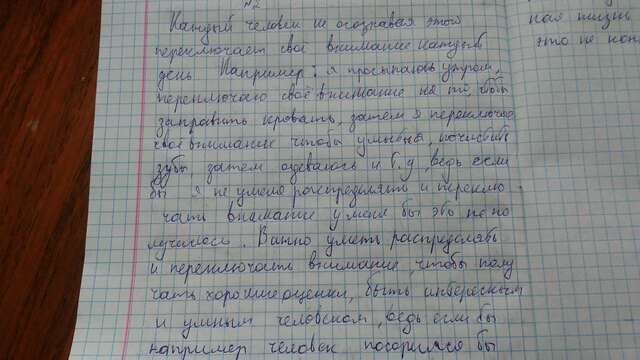 №2
Каждый человек не осознавая этого
переключает своё внимание каждый
день Например: я просыпаюсь утром,
переключаю своё внимание на то, чтобы
заправить кровать, затем я переключаю
своё внимание чтобы умыться, почистить
зубы затем одеваюсь и т.д, ведь если
бы я не умела распределять и переклю
чать внимание у меня бы это не по
лучилось. Важно уметь распределять
и переключать внимание, чтобы полу
чать хорошие оценки, быть интересным
и умным человеком, ведь если бы
например человек посорился бы
ная жизнь
это не кон